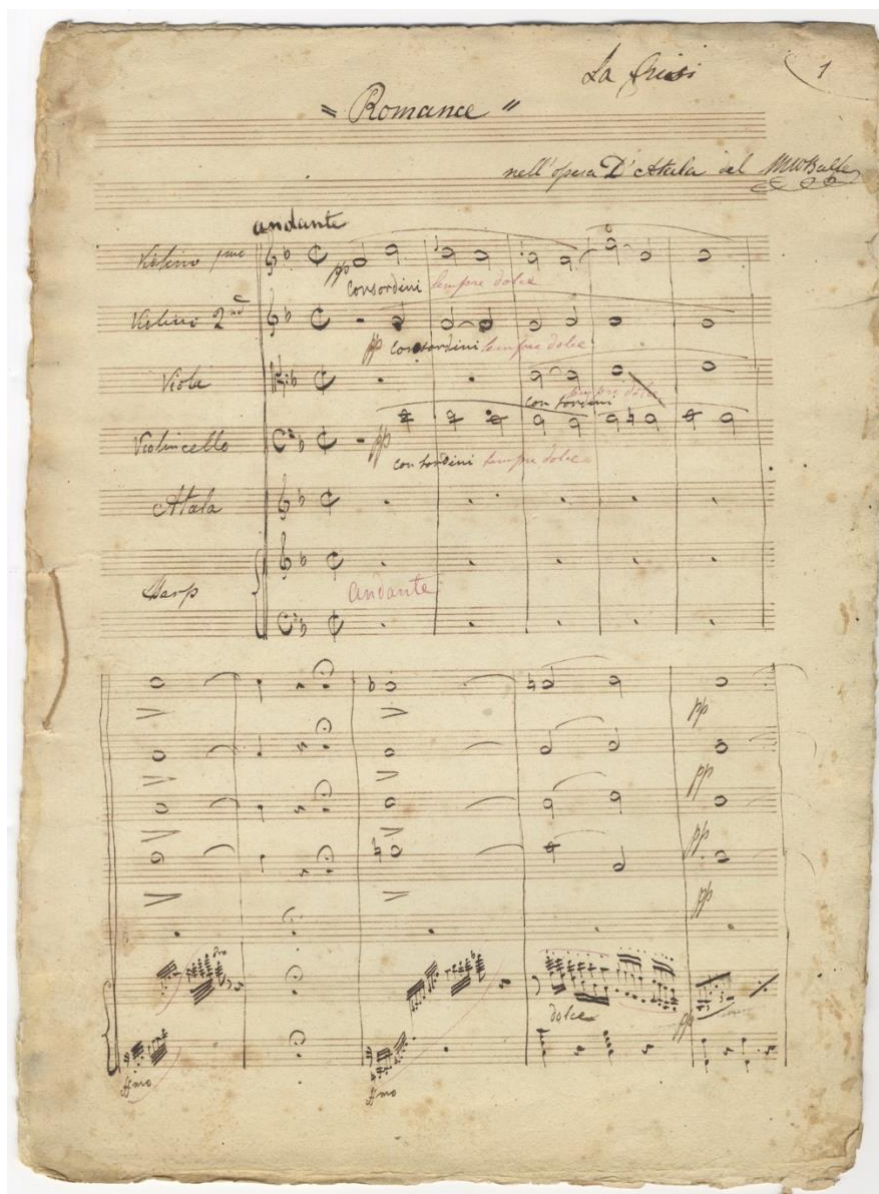 La Grisi
1
= Romance "
nell'opera D'Atala del MWBalfe
andante
Violino pmo
pp
con sordini sempre dolce
Violino 2nd
pp con sordini sempre dolce
Viola
con sordini sempre dolce
Violincello
pp
con sordini sempre dolce
Atala
Harp
andante
pp
pp
pp
pp
8va
dolce
pp
ffmo
ffmo